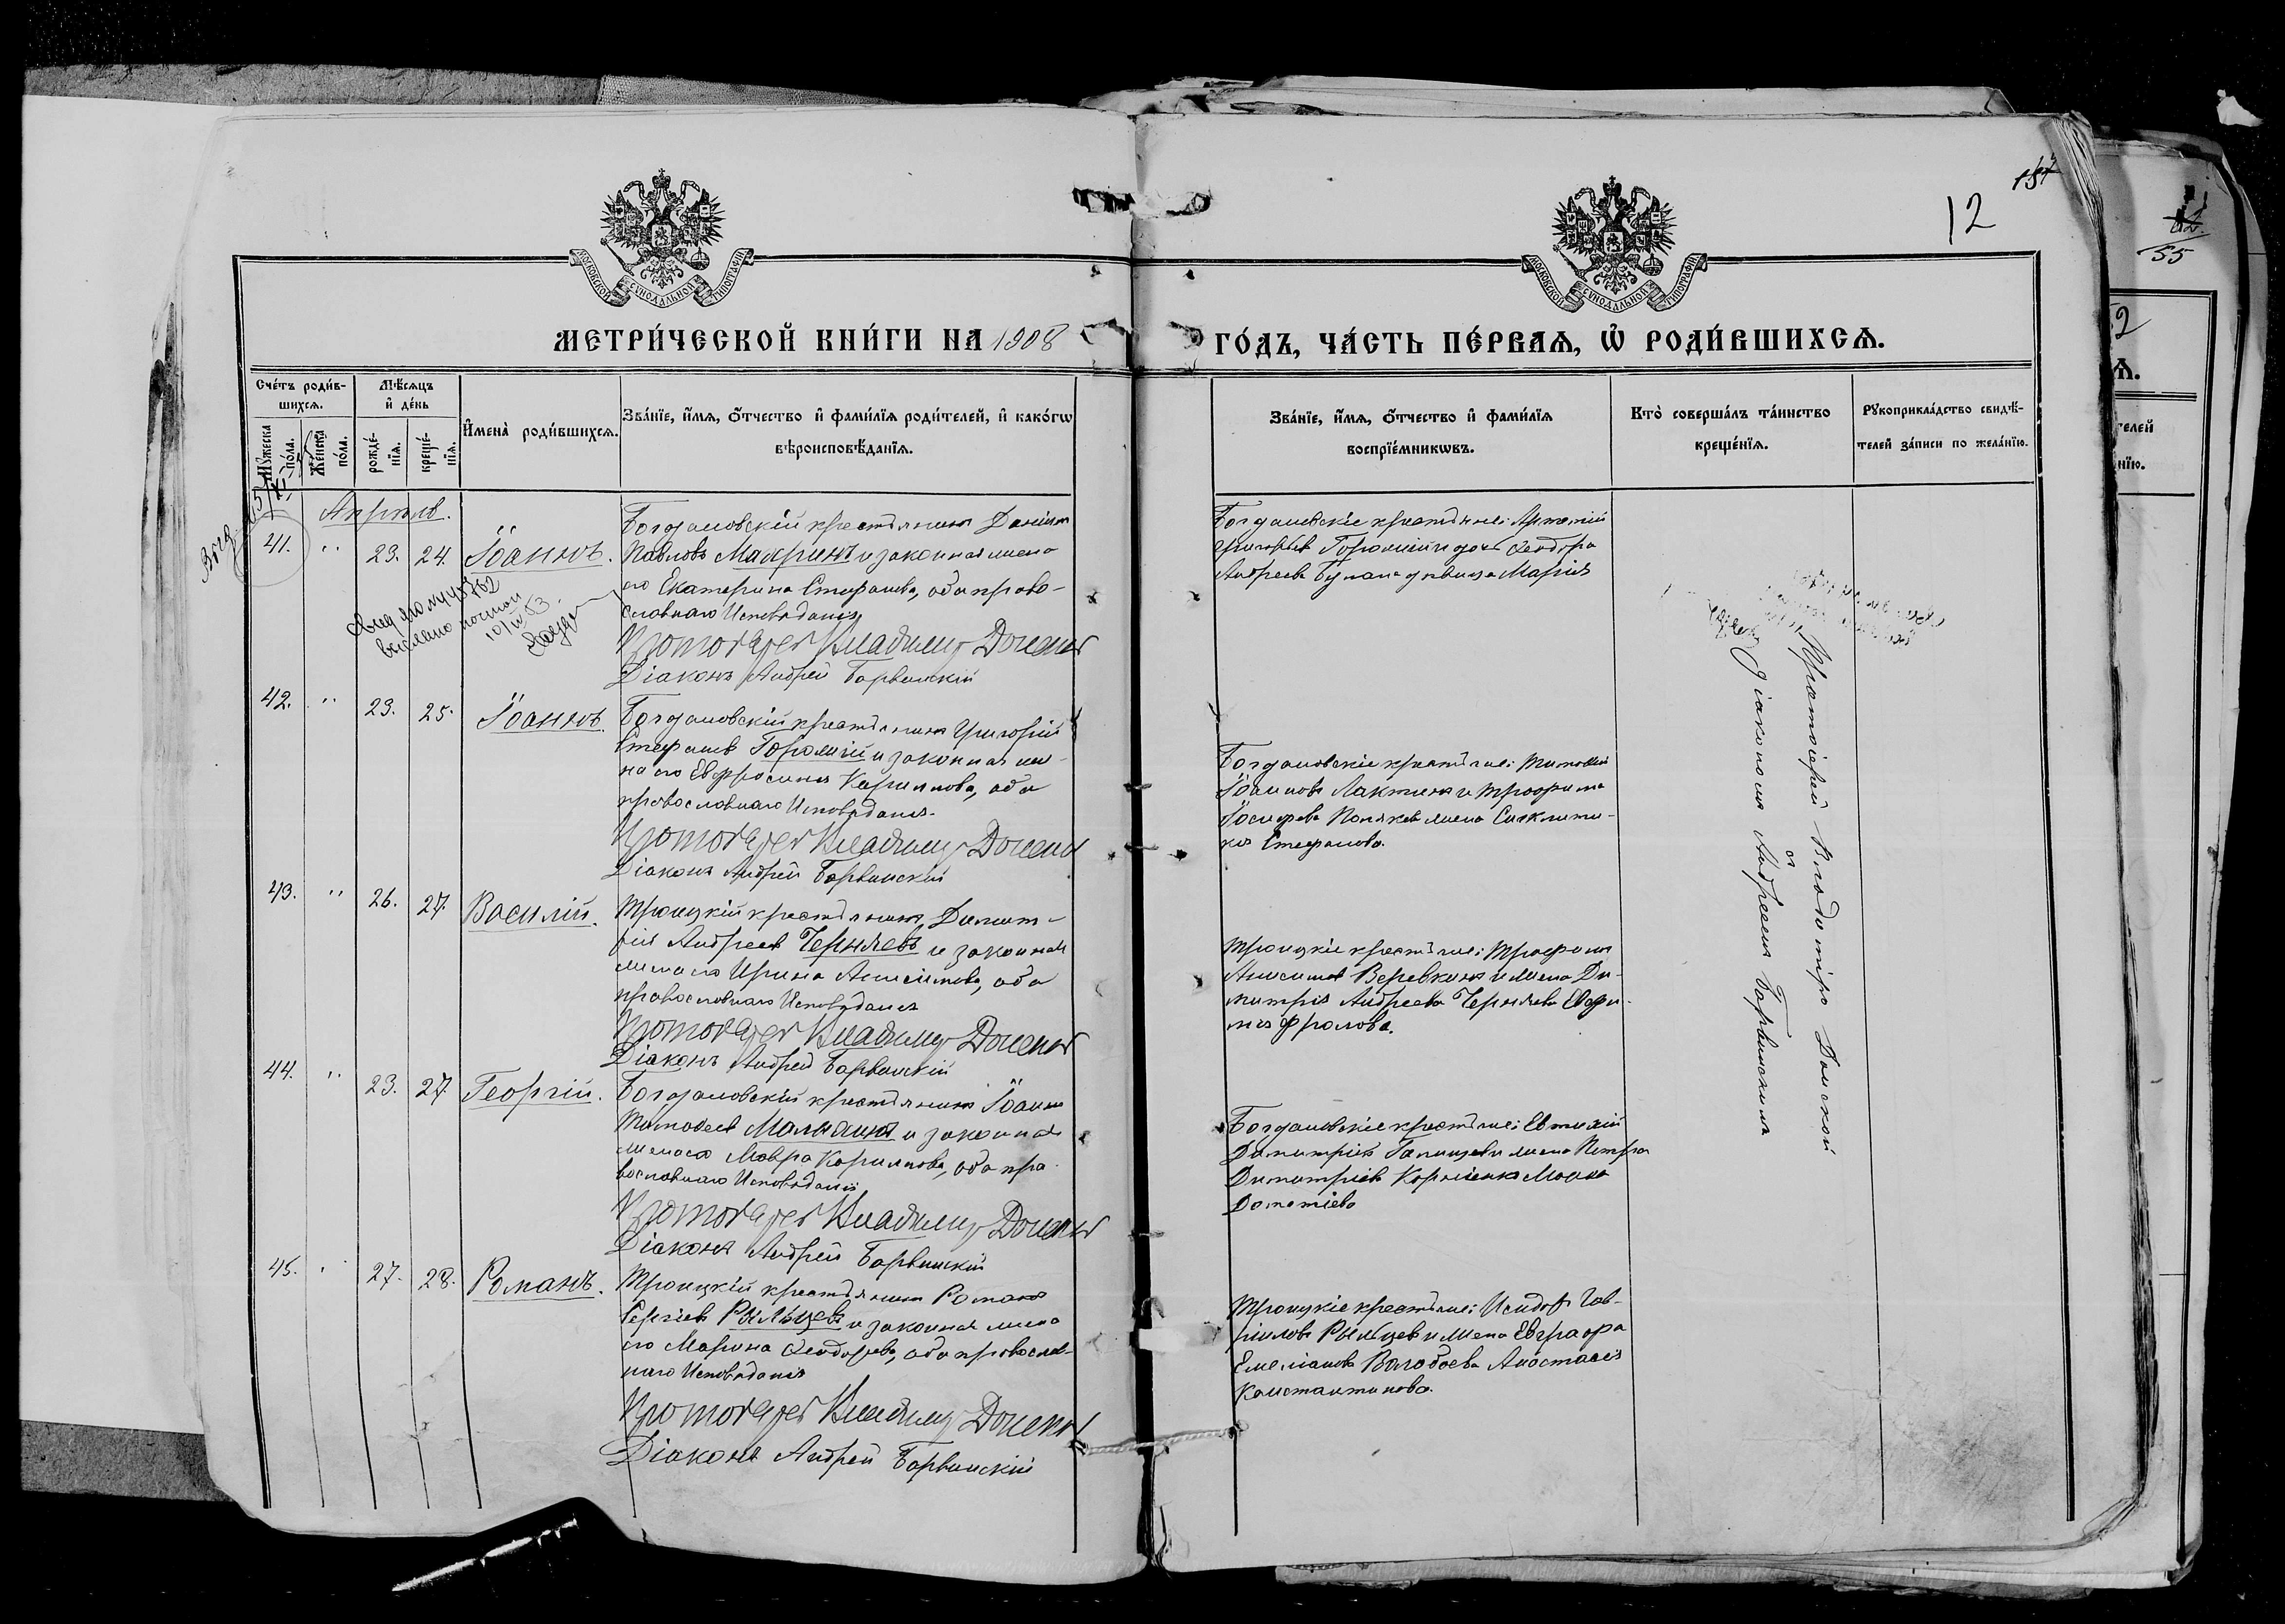 12
МОСКОВСКОЙ СѴНОДАЛЬНОЙ ТИПОГРАФІИ
МОСКОВСКОЙ СѴНОДАЛЬНОЙ ТИПОГРАФІИ
МЕТРИ́ЧЕСКОЙ КНИ́ГИ НА 1908
ГО́ДЪ, ЧА́СТЬ ПЕ́РВАѦ, Ѡ҆ РОДИ́ВШИХСѦ.
Сче́тъ роди́в-
шихсѧ.
Мꙋ́жеска по́ла.
Же́нска по́ла.
Мѣ́сѧцъ
и҆ де́нь
рожде́-
нїѧ.
креще́-
нїѧ.
И҆мена̀ роди́вшихсѧ.
Зва́нїе, и҆́мѧ, ѻ҆́тчество и҆ фами́лїѧ роди́телей, и҆ како́гѡ
вѣроисповѣ́данїѧ.
Зва́нїе, и҆́мѧ, ѻ҆́тчество и҆ фами́лїѧ
воспрїе́мникѡвъ.
Кто̀ соверша́лъ та́инство
креще́нїѧ.
Рꙋкоприкла́дство свидѣ́-
телей за́писи по жела́нїю.
Апрѣль.
41. " 23. 24. Іоаннъ.
Богдановскій крестьянинъ Даніилъ
Павловъ Махринъ и законная жена
его Екатерина Стефанова, оба право-
славнаго Исповѣданія
Протоіерей Владимиръ Донской
Діаконъ Андрей Барвинскій
Богдановскіе крестьяне: Артемій
Григорьев Горомій и дочь Ѳеодора
Андреева дѣвица Марія
выслано почтой
42. " 23. 25. Іоаннъ.
Богдановскій крестьянинъ Григорій
Стефанов Горомій и законная же-
на его Евфросинія Кириллова, оба
православнаго Исповѣданія.
Протоіерей Владимиръ Донской
Діаконъ Андрей Барвинскій
Богдановскіе крестьяне: Тимоѳей
Іоанновъ Лактинъ и Трофима
Іосифова Полякова жена Синклити-
кія Стефанова.
43. " 26. 27. Василій.
Троицкій крестьянинъ Димит-
рій Андреев Черняевъ и законная
жена его Ирина Анисимова, оба
православнаго Исповѣданія
Протоіерей Владимиръ Донской
Діаконъ Андрей Барвинскій
Троицкіе крестьяне: Трофимъ
Анисимов Веревкинъ и жена Ди-
митрія Андреева Черняева Евфи-
мія Фролова.
44. " 23. 27. Георгій.
Богдановскій крестьянинъ Іоаннъ
Тимоѳеев Малыхинъ и законная
жена его Мавра Кириллова, оба пра-
вославнаго Исповѣданія
Протоіерей Владимиръ Донской
Діаконъ Андрей Барвинскій
Богдановскіе крестьяне: Евтихій
Димитріев и жена Петра
Димитріева Корніенка
45. " 27. 28. Романъ.
Троицкій крестьянинъ Романъ
Сергіевъ Рыльцевъ и законная жена
его Марина Ѳеодорова, оба православ-
наго Исповѣданія
Протоіерей Владимиръ Донской
Діаконъ Андрей Барвинскій
Троицкіе крестьяне: Исидоръ Гав-
рииловъ Рыльцев и жена Евграфа
Емеліанова Волобоева Анастасія
Константинова.
Протоіерей Владиміръ Донской
съ діакономъ Андреемъ Барвинскимъ
55